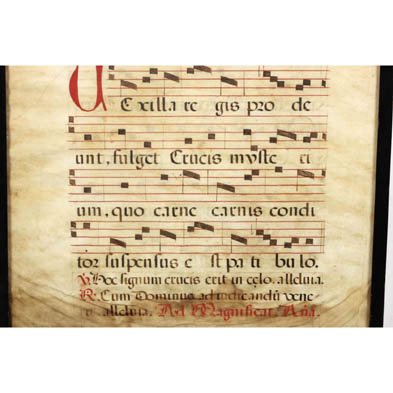 Vexilla re gis pro de
unt, fulget Crucis myste ri
um, quo carne carnis condi
tor suspensus e st pa ti bu lo.
℣. Hoc signum crucis erit in cęlo. alleluia.
℟. Cum Dominus ad iudicandũ vene-
alleluia. Ad Magnificat. Aña.